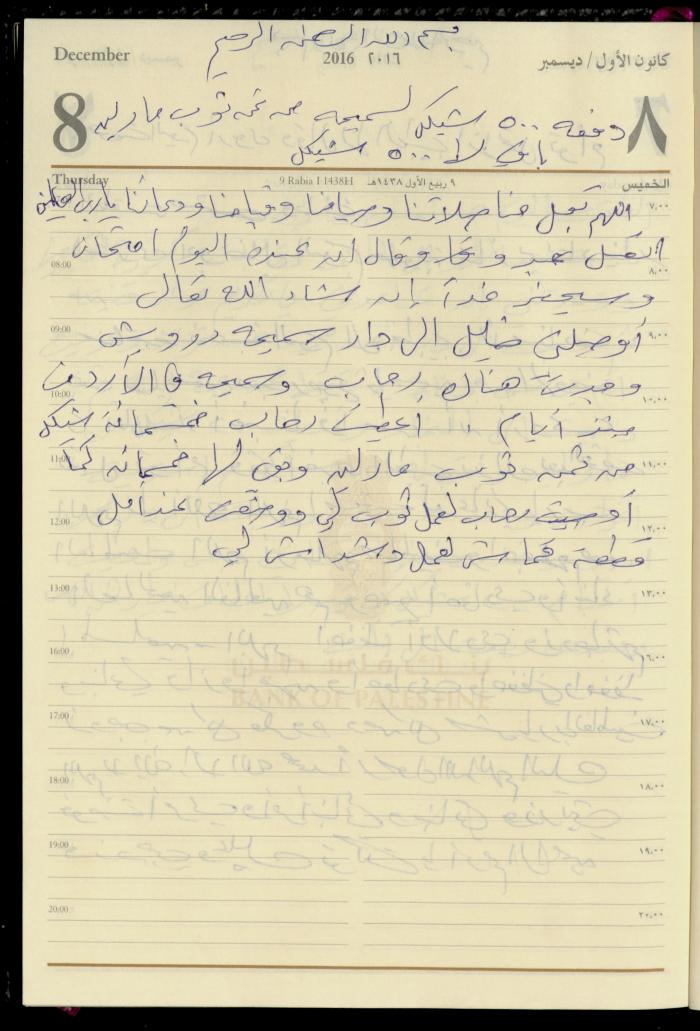 بسم الله الرحمن الرحيم
December
2016 ٢٠١٦
كانون الأول / ديسمبر
8
٨
دفعة ٥٠٠ شيكل لسميحه من ثمن ثوب مارلين
باقي لها ٥٠٠ شيكل
Thursday
9 Rabia I 1438H
٩ ربيع الأول ١٤٣٨هـ
الخميس
اللهم تقبل منا صلاتنا وصيامنا وقيامنا ودعائنا يا رب العالمين
٧,٠٠
اتصل وقال ان عنده اليوم امتحان
08:00
٨,٠٠
وسيحضر غداً إن شاء الله تعالى
09:00
٩,٠٠
أوصلني خليل الى دار سميحه درويش
وجدت هناك رحاب وسميحه في الأردن
10:00
١٠,٠٠
منذ أيام . اعطيت رحاب خمسمائة شيكل
من ثمن ثوب مارلين وبقي لها خمسمائه كما
11:00
١١,٠٠
أوصيت رحاب لعمل ثوب لي ووضعت عندها
12:00
١٢,٠٠
قطعة قماش لعمل دشداش لي
13:00
١٣,٠٠
16:00
١٦,٠٠
بنك فلسطين
BANK OF PALESTINE
17:00
١٧,٠٠
18:00
١٨,٠٠
19:00
١٩,٠٠
20:00
٢٠,٠٠